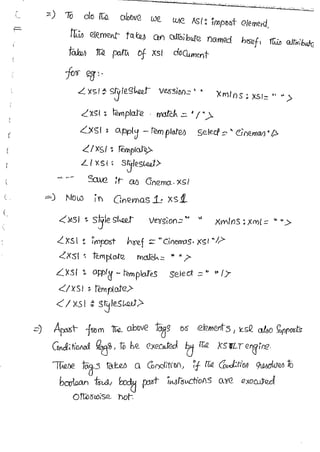 =) To do the above we use XSl: impost element.
this element takes an attribute named href, this attribute
takes the path of xsl document
for eg:-
<xsl: stylesheet version=" " xmlns: xsl= " ">
<xsl: template match = '/'>
<xsl: apply - templates select= "Cinemas"/>
</xsl: template>
</xsl: Stylesheet>
--- Save it as Cinema.xsl
=) Now in Cinemas1.xsl
<xsl: style sheet version=" " xmlns:xml= " ">
<xsl: impost href = "Cinemas.xsl"/>
<xsl: template match= " ">
<xsl: apply - templates select =" "/>
</xsl: template>
</xsl: stylesheet>
=) Apart from the above tags or elements, xsl also supports
Conditional tags, to be executed by the XSLT engine.
These tags takes a Condition, if the Condition resolves to
boolean true, body part instructions are executed
Otherwise not.